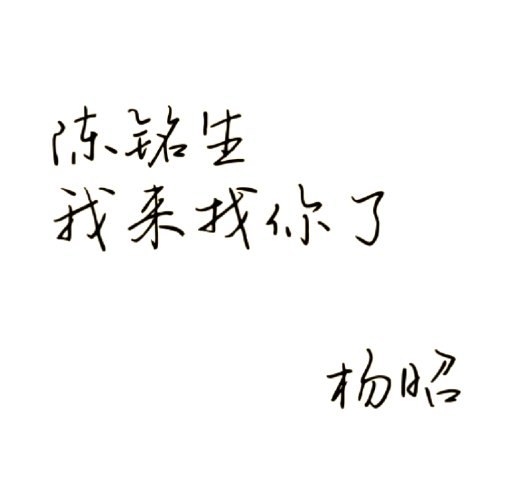 陈铭生
我来找你了
杨昭